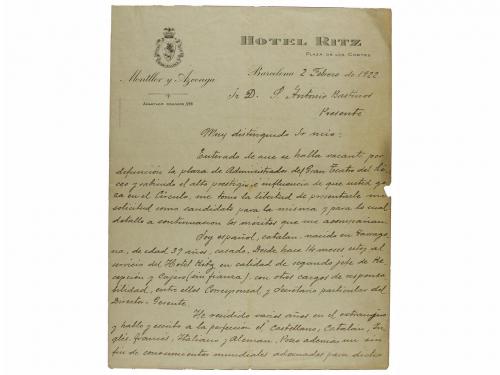 HOTEL RITZ
PLAZA DE LAS CORTES
Montllor y Azcona
Barcelona 2 Febrero de 1922
Sr D. P. Antonio Bastinos
Presente
Muy distinguido Sr mio:
Enterado de que se halla vacante por
defunción la plaza de Administrador del Gran Teatro del Li-
ceo y sabiendo el alto prestigio e influencia de que usted go-
za en el Círculo, me tomo la libertad de presentarle mi
solicitud como candidato para la misma, y para lo cual
detallo a continuación los méritos que me acompañan
Soy español, catalan, nacido en Tarrago-
na, de edad 39 años, casado. Desde hace 14 meses estoy al
servicio del Hotel Ritz en calidad de segundo jefe de Re-
cepción y Cajero (sin fianza), con otros cargos de responsa-
bilidad, entre ellos Corresponsal y Secretario particular del
Director-Gerente.
He residido varios años en el extranjero
y hablo y escribo a la perfección el Castellano, Catalan, In-
glés, francés, Italiano y Aleman. Poseo ademas un sin
fin de conocimientos mundiales adecuados para dicho